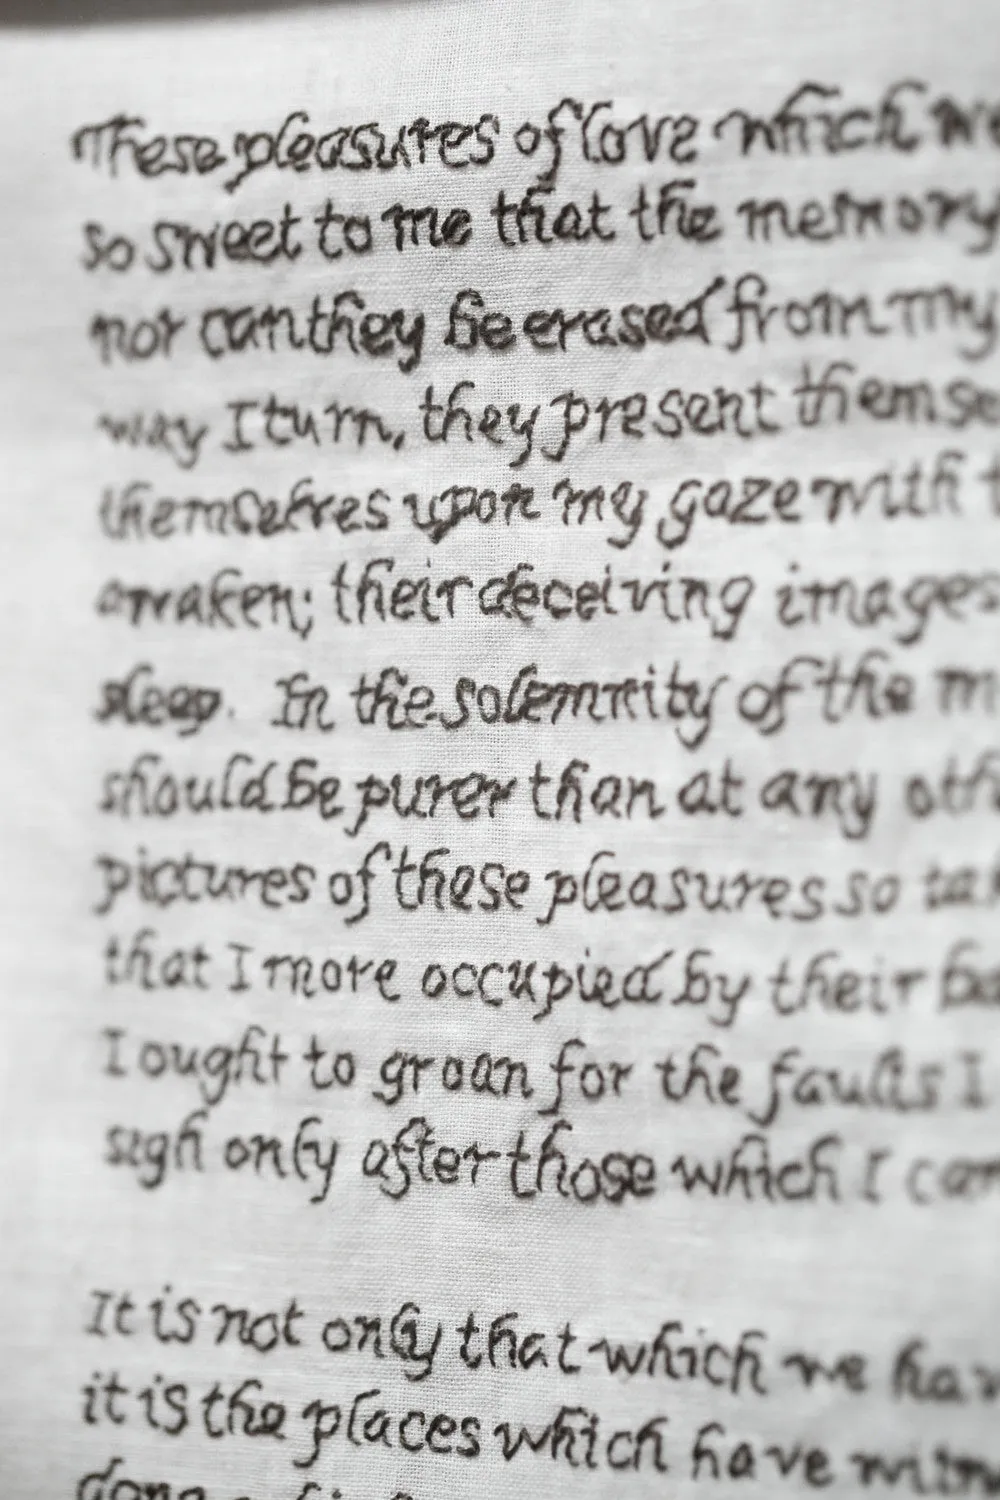 These pleasures of love which we
so sweet to me that the memory
nor can they be erased from my
way I turn, they present themse
themselves upon my gaze with t
awaken; their deceiving images
sleep. In the solemnity of the m
should be purer than at any oth
pictures of these pleasures so tak
that I more occupied by their ba
I ought to groan for the faults I
sigh only after those which I can
It is not only that which we hav
it is the places which have witn